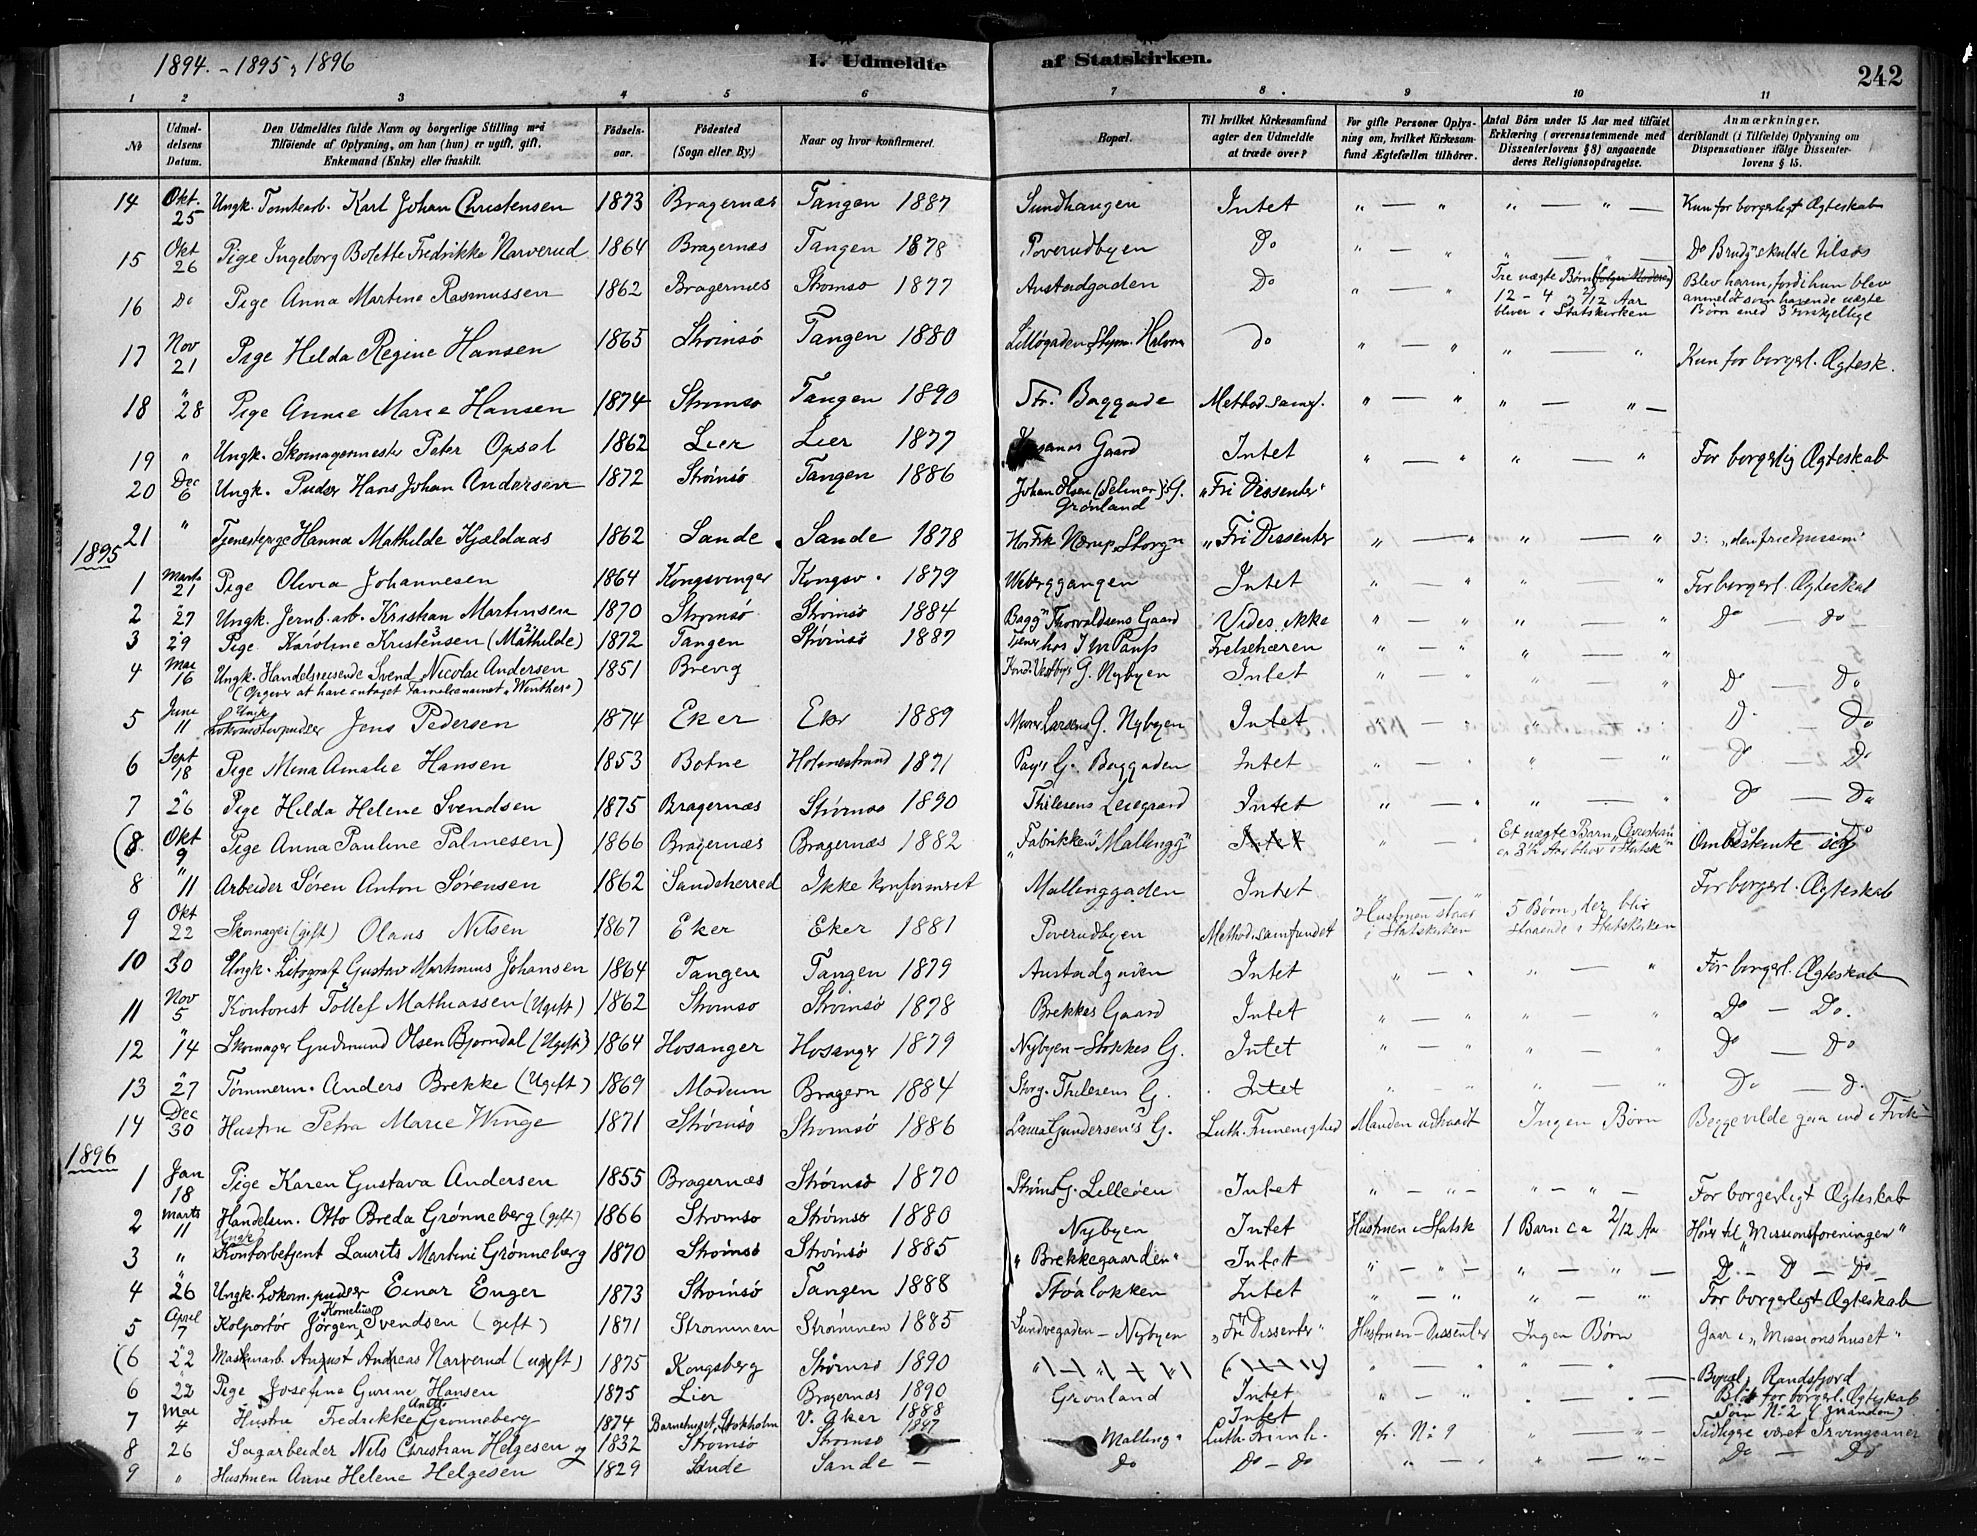 1894. - 1895, 1896
I. Udmeldte af Statskirken.
242
1 2 3 4 5 6 7 8. 9 10 11
No
Udmeldelsens Datum.
Den Udmeldtes fulde Navn og borgerlige Stilling med Tilføiende af Oplysning, om han (hun) er ugift, gift, Enkemand (Enke) eller fraskilt.
Fødselsaar.
Fødested (Sogn eller By.)
Naar og hvor konfirmeret.
Bopæl.
Til hvilket Kirkesamfund agter den Udmeldte at træde over?
For gifte Personer Oplysning om, hvilket Kirkesamfund Ægtefællen tilhører.
Antal Børn under 15 Aar med tilføiet Erklæring (overensstemmende med Dissenterlovens § 8) angaaende deres Religionsopdragelse.
Anmærkninger, deriblandt (i Tilfælde) Oplysning om Dispensationer ifølge Dissenterlovens § 15.
14 Okt. 25 Ungk. Tomtearb. Karl Johan Christensen 1873 Bragernæs Tangen 1887 Sundhaugen Intet " — " " — " — Kun for borgerligt Ægteskab
15 Okt 26 Pige Ingeborg Bolette Fredrikke Narverud 1864 Bragernæs Tangen 1878 Poverudbyen Do " — " " — " Do Brudg skulde tilsøs
16 Do Pige Anna Martine Rasmussen 1862 Bragernæs Strømsø 1877 Austadgaden Do " — " Tre uægte Børn (følger Moderen) 12 - 4 og 2/12 Aar bliver i Statskirken Blev harm, fordi hun blev anmeldt som havende uægte Børn med 3 forskjellige
17 Nov 21 Pige Hilda Regine Hansen 1865 Strømsø Tangen 1880 Lilløgaden Do " — " " — " Kun for borgerl. Ægtesk.
18 " 28 Pige Annie Marie Hansen 1874 Strømsø Tangen 1890 Str. Baggade Method. samf. " — " " — " —
19 " Ungk. Skomagermester Peter Opsal 1862 Lier Lier 1877 Gaard Intet " — " " — " For borgerlig Ægteskab
20 Dec 6 Ungk. Pudser Hans Johan Andersen 1872 Strømsø Tangen 1886 Johan Olsen (Selmer)'s G. Grønland "Fri Dissenter"
21 " Tjenestepige Hanna Mathilde Kjældaas 1862 Sande Sande 1878 Hos Frk Nærup Storgn "Fri Dissenter " — " " — "
1895
1 Marts 21 Pige Olivia Johannesen 1864 Kongsvinger Kongsv. 1879 Weberggangen Intet " — " " — " For borgerl. Ægteskab
2 " 27 Ungk. Jernb. arb. Kristian Martinsen 1870 Strømsø Strømsø 1884 Bagg" Thorvaldsens Gaard Vides ikke " — " " — " Do Do
3 " 29 Pige Karoline Kristensen (Mathilde) 1872 Tangen Strømsø 1887 Tjener hos J M Paus Frelsehæren " — " " — "
4 Mai 16 Ungk. Handelsreisende Svend Nicolai Andersen 1851 Brevig G. Nybyen Intet " — " " — " Do — Do
(Opgiver at have antaget Familienavnet "Winther")
5 Juni 11 Ungk Lokomotivpudser Jens Pedersen 1874 Eker Eker 1889 Murer Larsens G. Nybyen Intet " — " D. — Do
6 Sept 18 Pige Mina Amalie Hansen 1853 Botne Holmestrand 1871 G. Baggaden Intet " — " " — " Do — Do
7 " 26 Pige Hilda Helene Svendsen 1875 Bragernæs Strømsø 1890 Thilesens Leiegaard Intet " — " " — " Do — Do
(8. Okt 9 Pige Anna Pauline Palmesen) 1866 Bragernæs Bragernæs 1882 "Fabrikken" Mallingg" Intet " — " Et uægte Barn er 3½ Aar bliver i Statsk Ombestemte sig
8 " 11 Arbeider Søren Anton Sørensen 1862 Sandeherred Ikke konfirmeret Mallinggaden Intet For borgerl. Ægteskab
9 Okt 22 Skomager (gift) Olaus Nilsen 1867 Eker Eker 1881 Poverudbyen Methodi. samfundet Hustruen staar i Statskirken 5 Børn, der bliv staaende i Statskirken
10 30 Ungk. Litograf Gustav Martinius Johansen 1864 Tangen Tangen 1879 Austadgaden Intet " — " " — " For borgerl. Ægteskab
11 Nov 5 Kontorist Tollef Mathiassen (Ugift) 1862 Strømsø Strømsø 1878 Brekkes Gaard Intet " — " " — " Do — Do.
12 " 14 Skomager Gudmund Olsen Bjørndal (Ugift) 1864 Hosanger Hosanger 1879 Nybyen - Stokkes G. Intet " — " " — " Do — Do
13 " 27 Tømmerm. Anders Brekke (Ugift) 1869 Modum Bragern 1884 Storg. Thilesens G. Intet " — " " — " Do — D.
14 Dec 30 Hustru Petra Marie Winge 1871 Strømsø Strømsø 1886 Gundersen's G. Luth. Frimenighed Manden udtraadt Ingen Børn Begge vilde gaa ind i Frik
1896
1 Jan 18 Pige Karen Gustava Andersen 1855 Bragernæs Strømsø 1870 Strøms G. Lilleøen Intet " — " — " — " — For borgerligt Ægteskab
2 Marts 11 Handelsm. Otto Breda Grønneberg (gift) 1866 Strømsø Strømsø 1880 Nybyen Intet Hustruen i Statsk 1 Barn ca 2/12 Aar Hører til "Missionsforeningen"
3 " Ungk Kontorbetjent Laurits Martini Grønneberg 1870 Strømsø Strømsø 1885 "Brekkegaarden" Intet " — " — " " — " — D. — D — Do
4 " 26 Ungk. Lokom. pudser Einar Enger 1873 Strømsø Tangen 1888 Støaløkken Intet " — " " — " For borgerligt Ægteskab
5 April 7 Kolportør Jørgen Kornelius Svendsen (gift) 1871 Strømmen Strømmen 1885 Sundvegaden - Nybyen "Fri Dissenter" Hustruen - Dissenter Ingen Børn Gaar i "Missionshuset"
(6 " 22 Maskinarb. August Andreas Narverud (ugift) 1875 Kongsberg Strømsø 1890 " — " " — "
6 " 22 Pige Josefine Gurine Hansen 1875 Lier Bragernæs 1890 Grønland Intet " — " " — " Bopæl, Randsfjord Blot for borgerl. Ægteskab
7 Mai 4 Hustru Fredrikke Anette Grønneberg 1874 Barnehuset, Stokholm V. Aker 1888 Intet Som No 2 (Manden)
8 26 Sagarbeider Nils Christian Helgesen og 1832 Strømsø Strømsø 1847 Malling" Luth. Frimh. cfr. No 9 " — " Tidligere været Irvingianer
9 " Hustruen Anne Helene Helgesen 1829 Sande Sande — Do Do — Do " — " " — " Do — Do